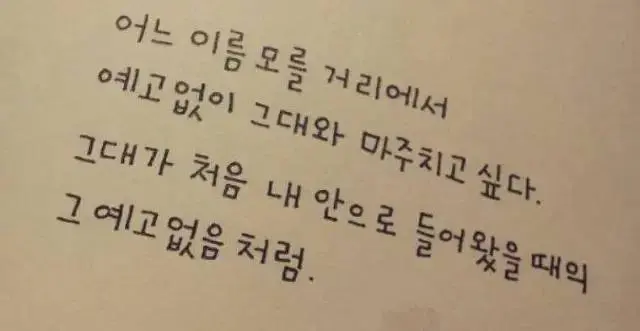 어느 이름 모를 거리에서
예고없이 그대와 마주치고 싶다.
그대가 처음 내 안으로 들어왔을 때의
그 예고없음 처럼.